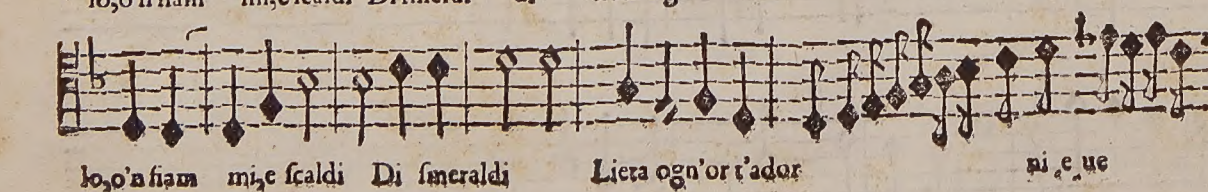 lo,o'n fiam mi,e ſcaldi Di ſmeraldi
lo,o'n fiam mi,e ſcaldi Di ſmeraldi Lieta ogn'or t'ador ni e ue